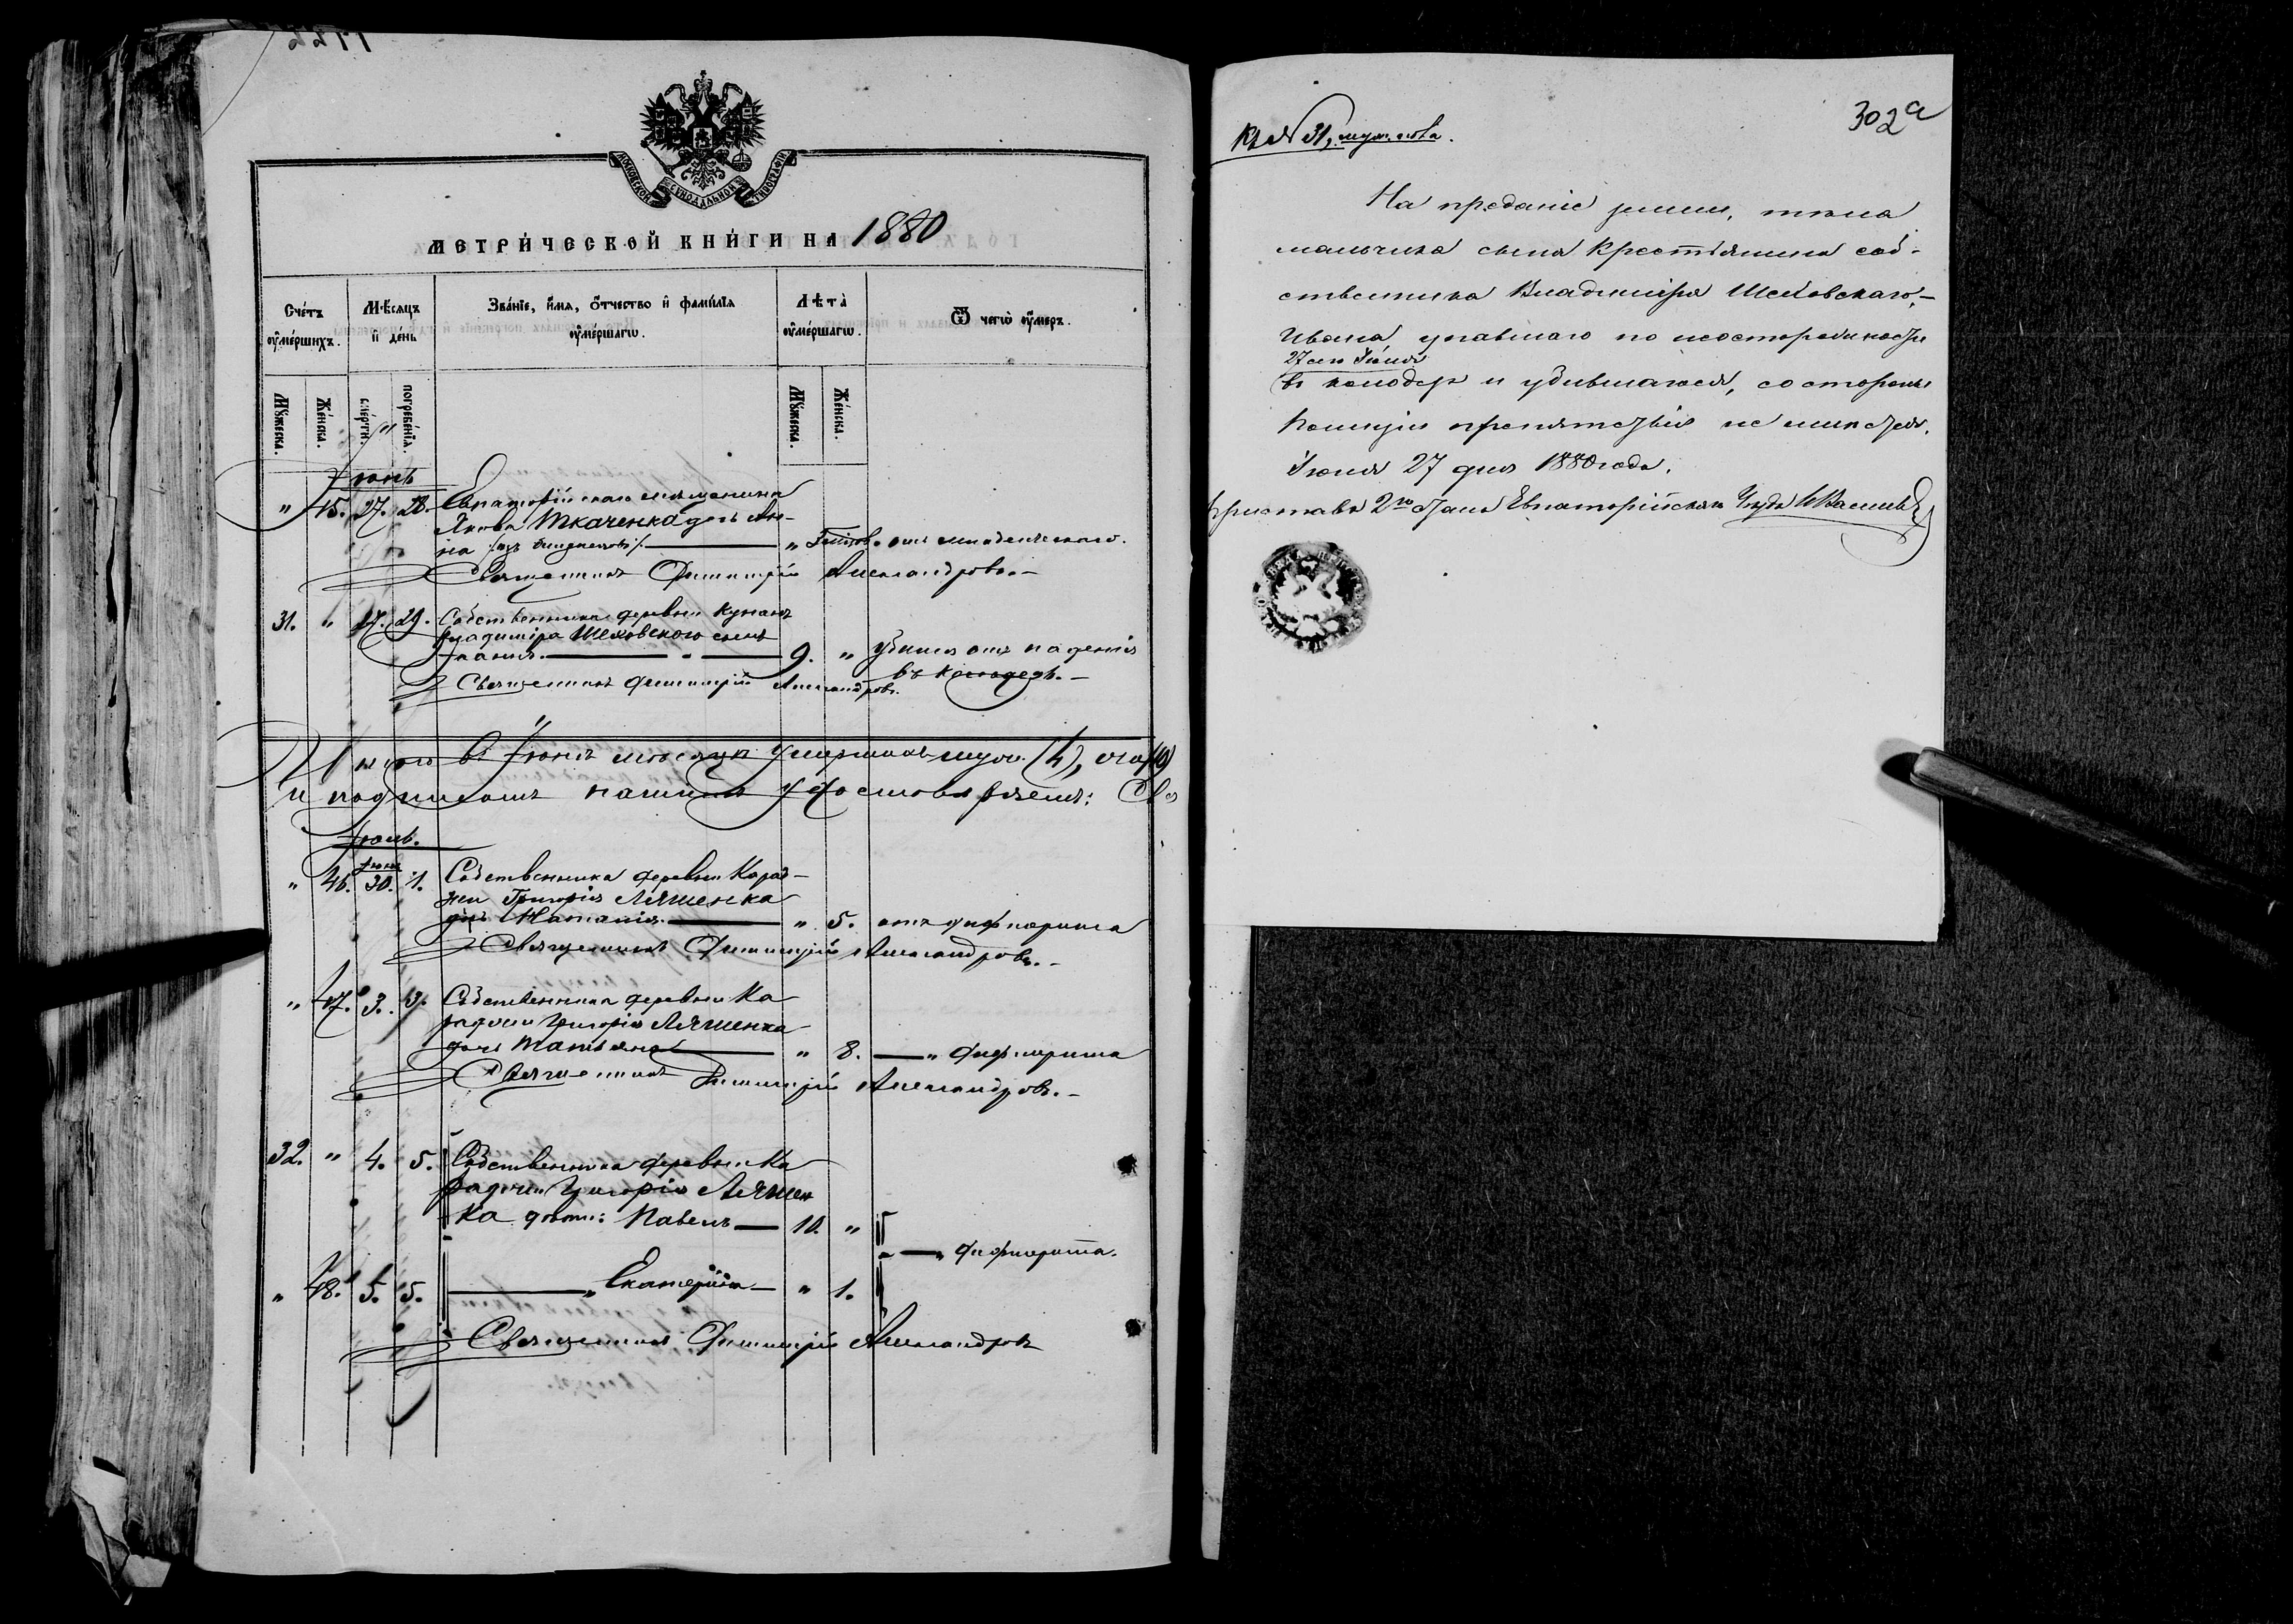 МОСКОВСКОЙ СѴНОДАЛЬНОЙ ТИПОГРАФІИ
МЕТРИ́ЧЕСКОЙ КНИ́ГИ НА 1880
Сче́тъ ᲂу҆ме́ршихъ.
Мѣ́сяцъ и҆ де́нь
Зва́нїе, и҆́мя, ѻ҆́тчество и҆ фами́лїя ᲂу҆ме́ршагѡ.
Лѣ́та ᲂу҆ме́ршагѡ.
Ѿ чегѡ̀ ᲂу҆́меръ.
Мꙋ́жеска.
Же́нска.
сме́рти.
погребе́нїѧ.
Мꙋ́жеска.
Же́нска.
Іюнь
" 45. 27. 28. Евпаторійскаго мѣщанина
Якова Ткаченка дочь Ан-
на " отъ младенческаго.
Священникъ Димитрій Александровъ.-
31. " 27. 29. Собственника деревни Кунанъ
Владиміра Шеховского сынъ
Іоаннъ. 9. " убился отъ паденія
въ колодезь.-
Священникъ Димитрій Александровъ.
Итого въ Іюнѣ мѣсяцѣ умершихъ муж. (4), жен. (10)
и подписомъ нашимъ удостовѣряемъ: Св
Іюль.
" 46. Іюня 30. 1. Собственника деревни Карад-
жи Григорія Ляшенка
дчь Наталія. " 5. отъ дифтерита
Священникъ Димитрій Александровъ.-
" 47. 3. 3. Собственника деревни Ка
раджи Григорія Ляшенка
дочь Татьяна " 8. — " дифтерита
Священникъ Димитрій Александровъ.-
32. " 4. 5. Собственника деревни Ка
раджи Григорія Ляшен
ка дѣти: Павелъ — 10. "
— " дифтерита.
" 48. 5. 5. " Екатерина — " 1.
Священникъ Димитрій Александровъ
302а
Къ № 31, муж. пола.
На преданіе земли, тѣла
мальчика сына Крестьянина соб-
ственника Владиміра Шеховскаго,-
Ивана, упавшаго по неосторожности
27 сего Іюня
въ колодезь и убившагося, со стороны
Полиціи препятствія не имѣется.
Іюня 27 дня 1880 года.
Приставъ 2го Стана Евпаторійскаго Уѣзда